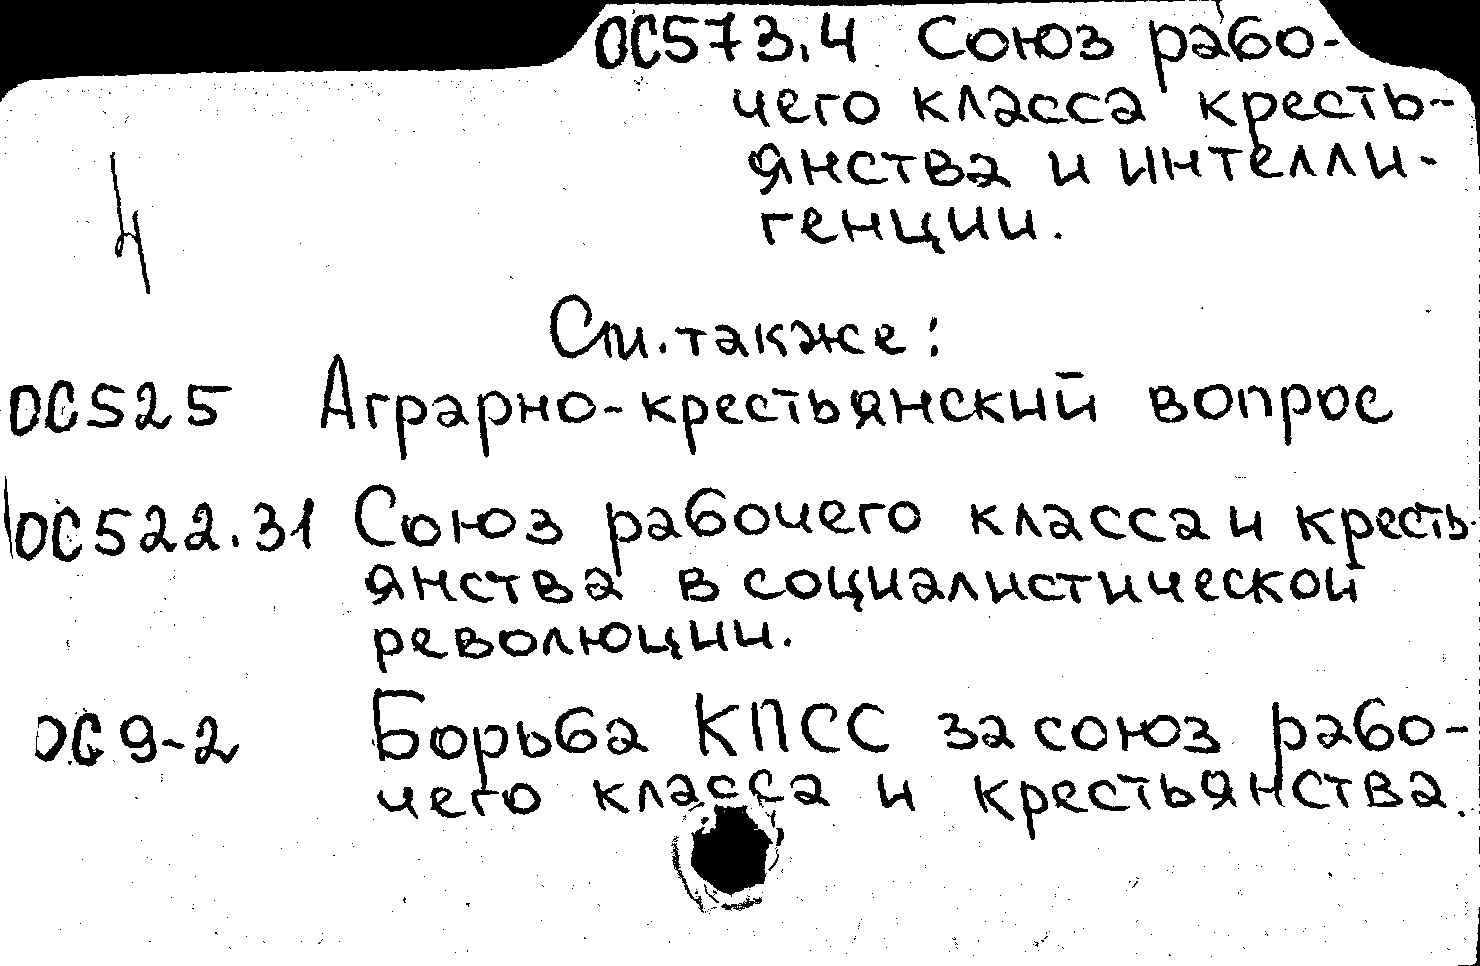 ОС573.4 Союз рабо-
чего класса кресть-
янства и интелли-
генции.
4
См. также:
ОС525 Аграрно-крестьянский вопрос
ОС522.31 Союз рабочего класса и кресть-
янства в социалистической
революции.
ОС9-2 Борьба КПСС за союз рабо-
чего класса и крестьянства.